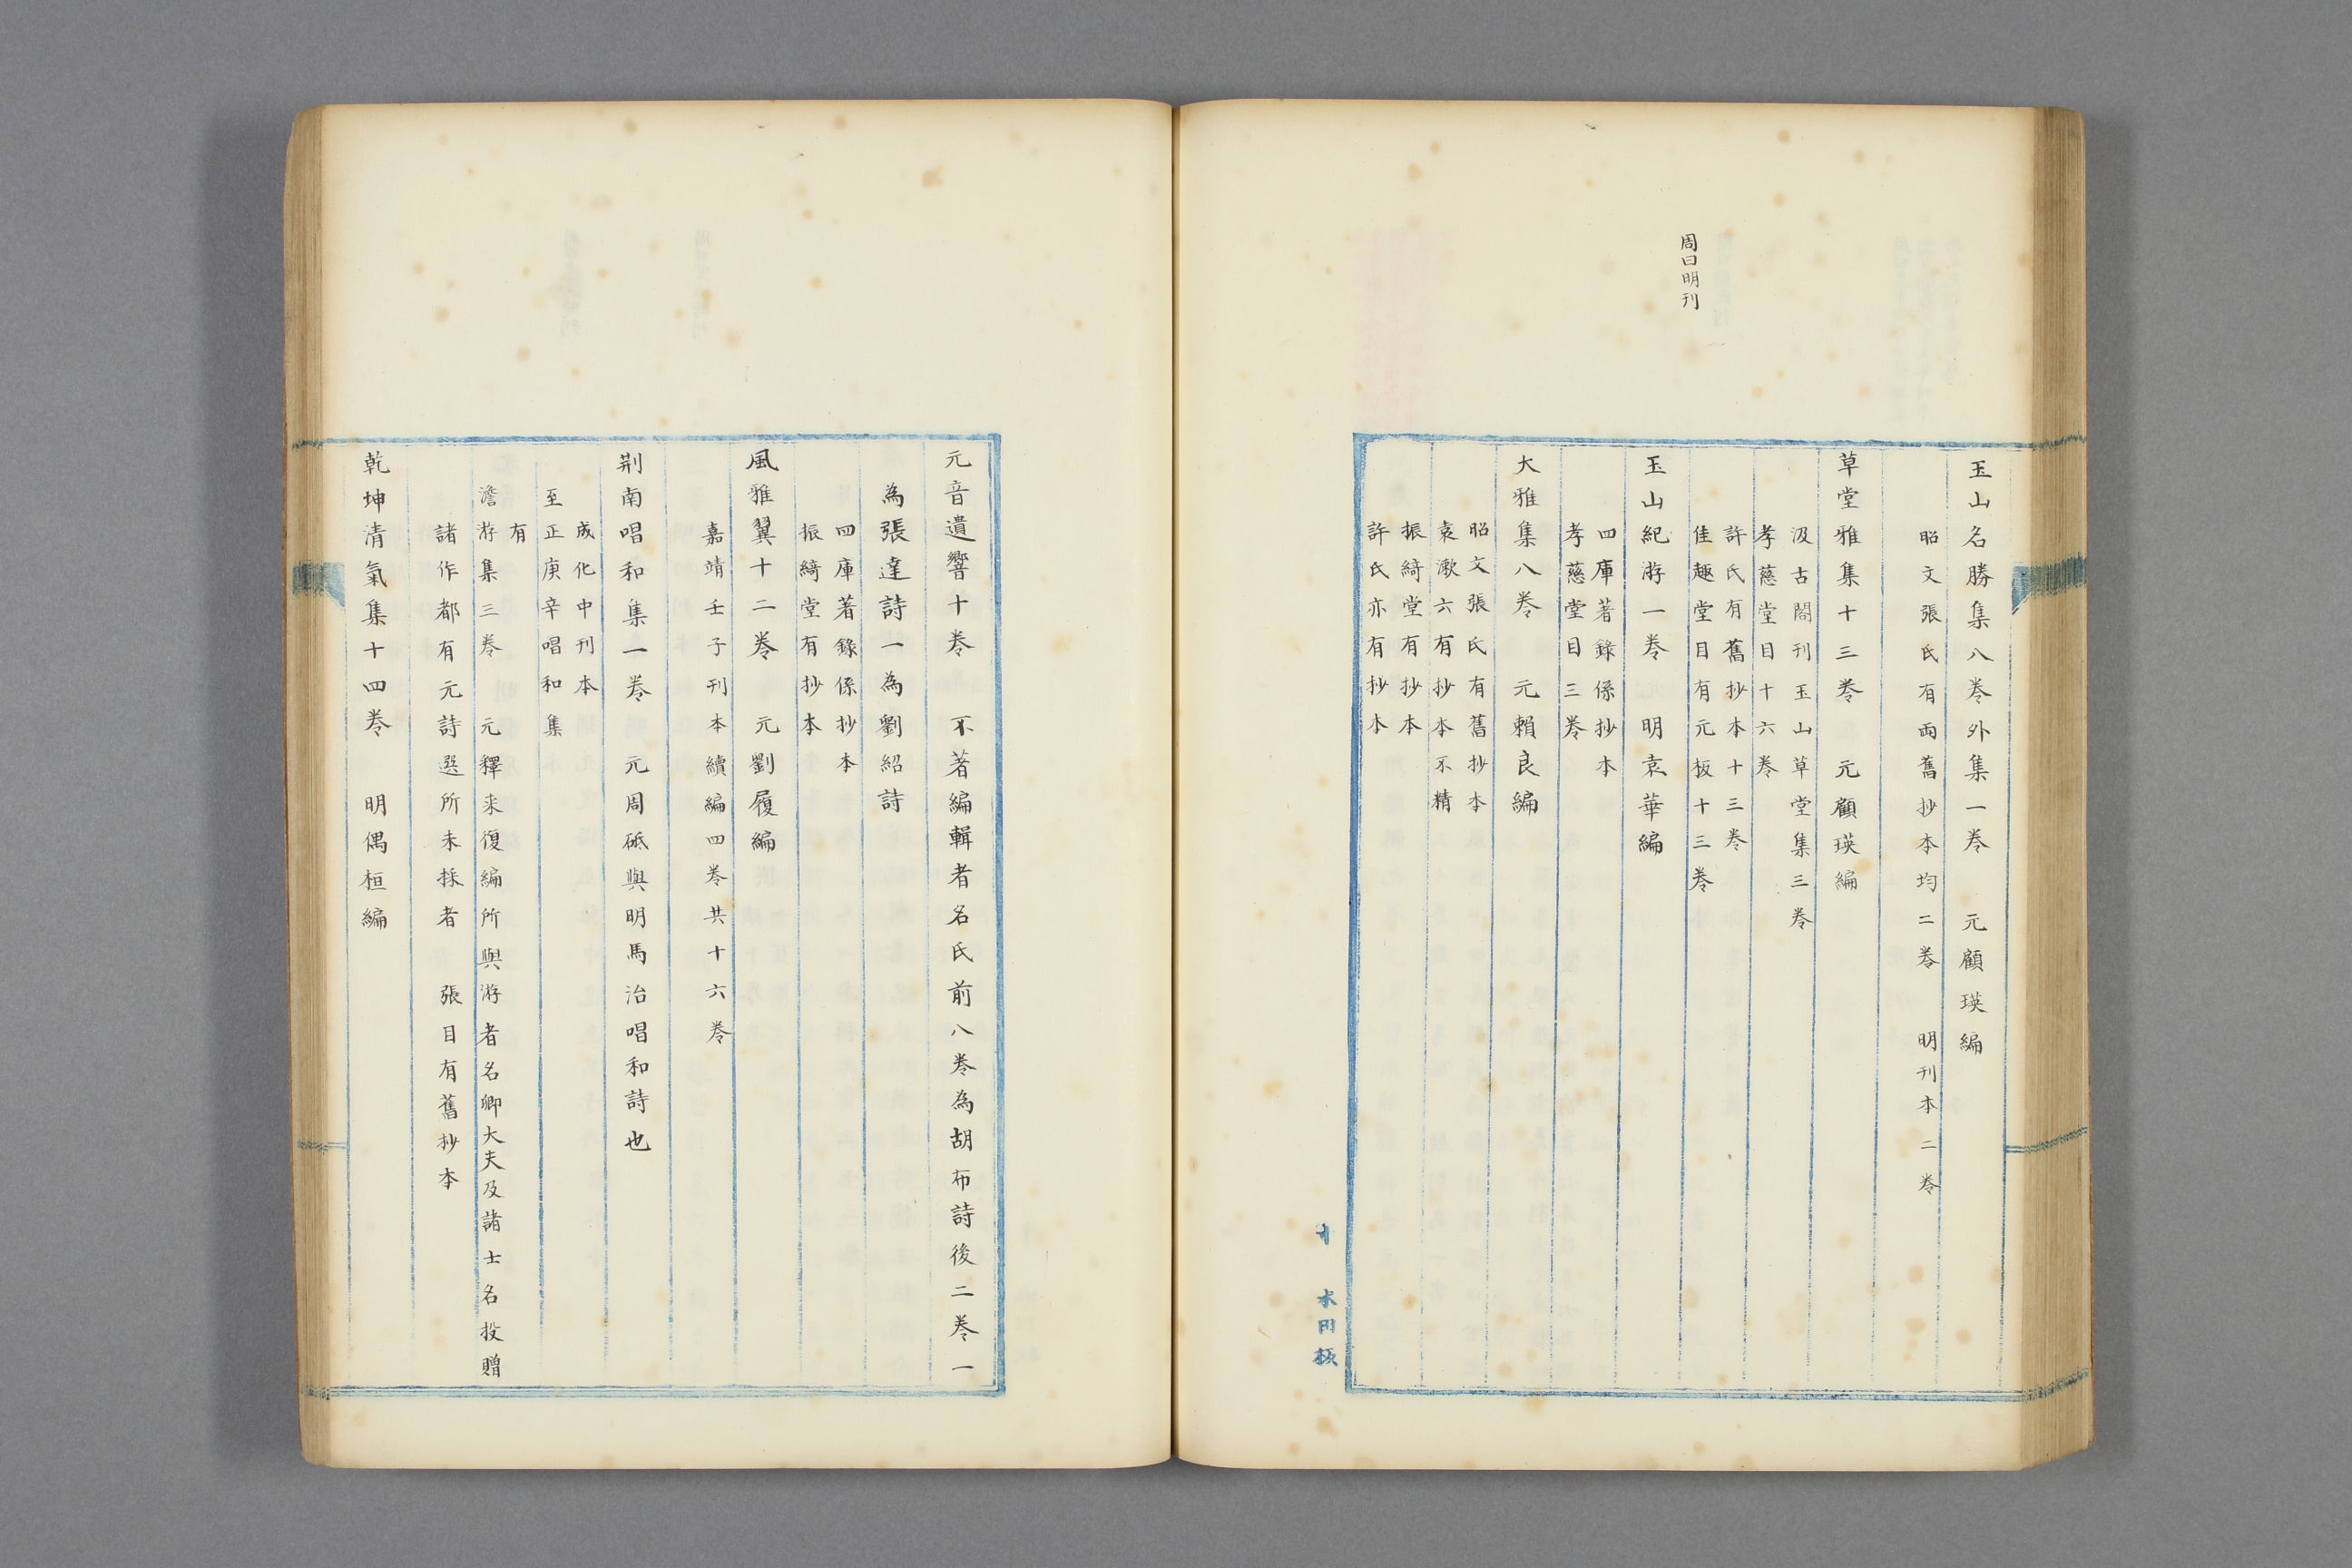 周曰明刊
玉山名勝集八卷外集一卷　元顧瑛編
昭文張氏有兩舊抄本均二卷　明刊本二卷
草堂雅集十三卷　元顧瑛編
汲古閣刊玉山草堂集三卷
孝慈堂目十六卷
許氏有舊抄本十三卷
佳趣堂目有元板十三卷
玉山紀游一卷　明袁華編
四庫著錄係抄本
孝慈堂目三卷
大雅集八卷　元賴良編
昭文張氏有舊抄本
袁漱六有抄本不精
振綺堂有抄本
許氏亦有抄本
元音遺響十卷　不著編輯者名氏前八卷為胡布詩後二卷一
為張達詩一為劉紹詩
四庫著錄係抄本
振綺堂有抄本
風雅翼十二卷　元劉履編
嘉靖壬子刊本續編四卷共十六卷
荆南唱和集一卷　元周砥與明馬治唱和詩也
成化中刊本
至正庚辛唱和集
有
澹游集三卷　元釋来復編所與游者名卿大夫及諸士名投贈
諸作都有元詩選所未採者　張目有舊抄本
乾坤清氣集十四卷　明偶桓編